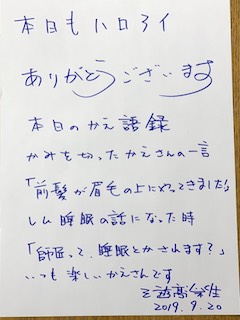 本日もハロアイ
ありがとうございます
本日のかえ語録
かみを切ったかえさんの一言
「前髪が眉毛の上にやってきました!」
レム睡眠の話になった時
「師匠って、睡眠とかされます?」
いつも楽しいかえさんです
2019.9.20